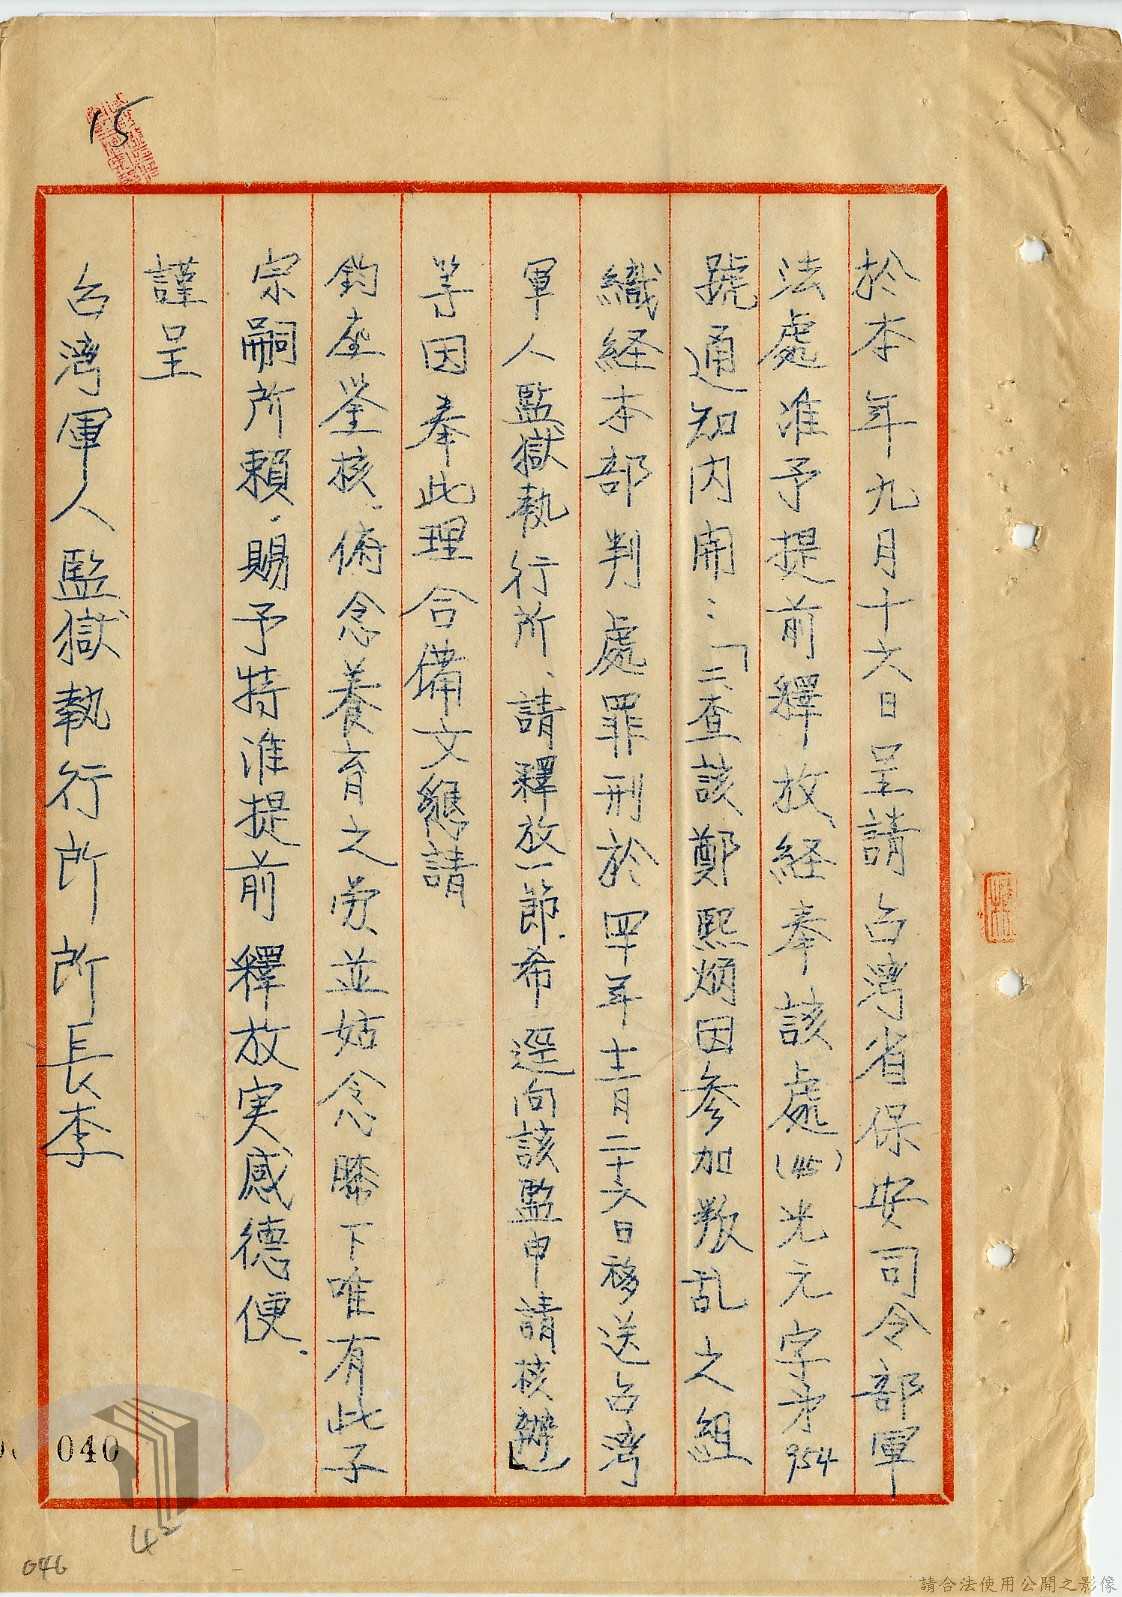 15
於本年九月十六日呈請台湾省保安司令部軍
法處准予提前釋放経奉該處(45)光元字才954
號通知内開：「二查該鄭熙炳因參加叛乱之組
織経本部判處罪刑於四十年十二月二十六日移送台湾
軍人監獄執行所、請釋放一節、希逕向該監申請核辦」
等因奉此理合備文懇請
鈞座鉴核、俯念養育之勞並姑念膝下唯有此子
宗嗣所賴、賜予特准提前釋放実感德便、
謹呈
台湾軍人監獄執行所所長李
040
42
046
請合法使用公開之影像